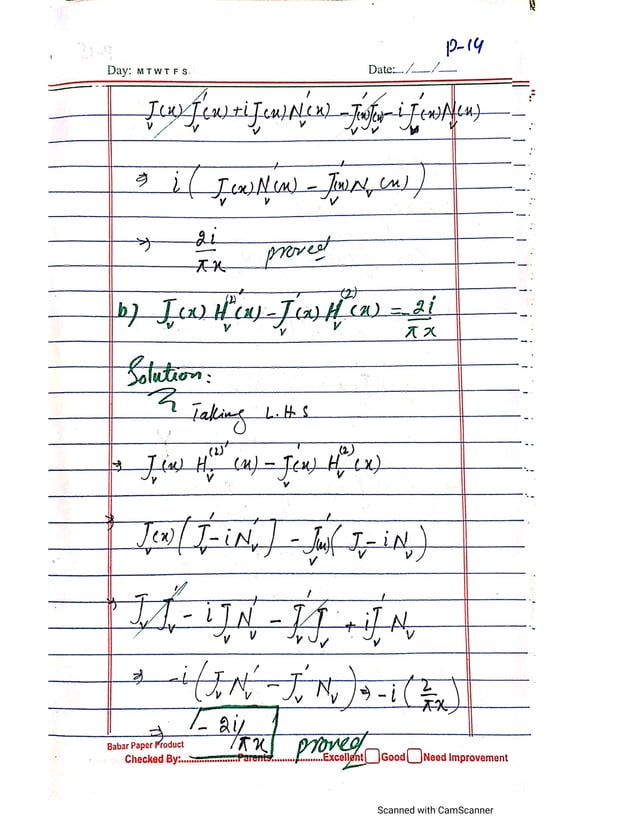 p-14
Day: M T W T F S. Date:.../___/___
J_v(x) J_v'(x) + i J_v(x) N_v'(x) - J_v'(x) J_v(x) - i J_v'(x) N_v(x)
⇒ i ( J_v(x) N_v'(x) - J_v'(x) N_v(x) )
⇒ 2i/πx proved
b) J_v(x) H_v^(2)'(x) - J_v'(x) H_v^(2)(x) = -2i/πx
Solution:
Taking L.H.S
⇒ J_v(x) H_v^(2)'(x) - J_v'(x) H_v^(2)(x)
⇒ J_v(x) [ J_v' - i N_v' ] - J_v'(x) ( J_v - i N_v )
⇒ J_v J_v' - i J_v N_v' - J_v' J_v + i J_v' N_v
⇒ -i ( J_v N_v' - J_v' N_v ) ⇒ -i ( 2/πx )
⇒ -2i/πx proved
Babar Paper Product
Checked By:.....................Parents....................Excellent Good Need Improvement
Scanned with CamScanner